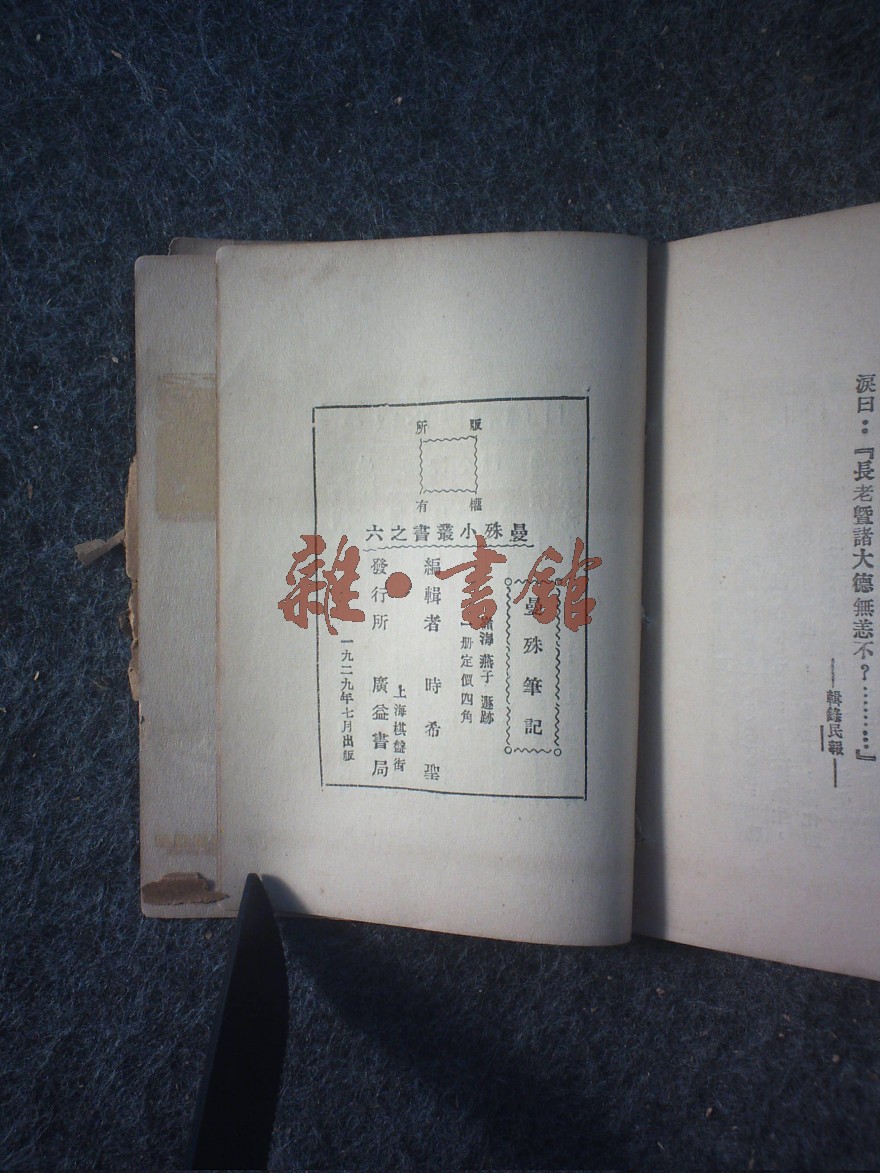 涙曰：『長老曁諸大德無恙不？………』
——輯錄民報——
版權
所有
曼殊小叢書之六
曼殊筆記
海 燕子 遯跡
册定價四角
編輯者 時希聖
上海棋盤街
發行所 廣益書局
一九二九年七月出版
雜·書館